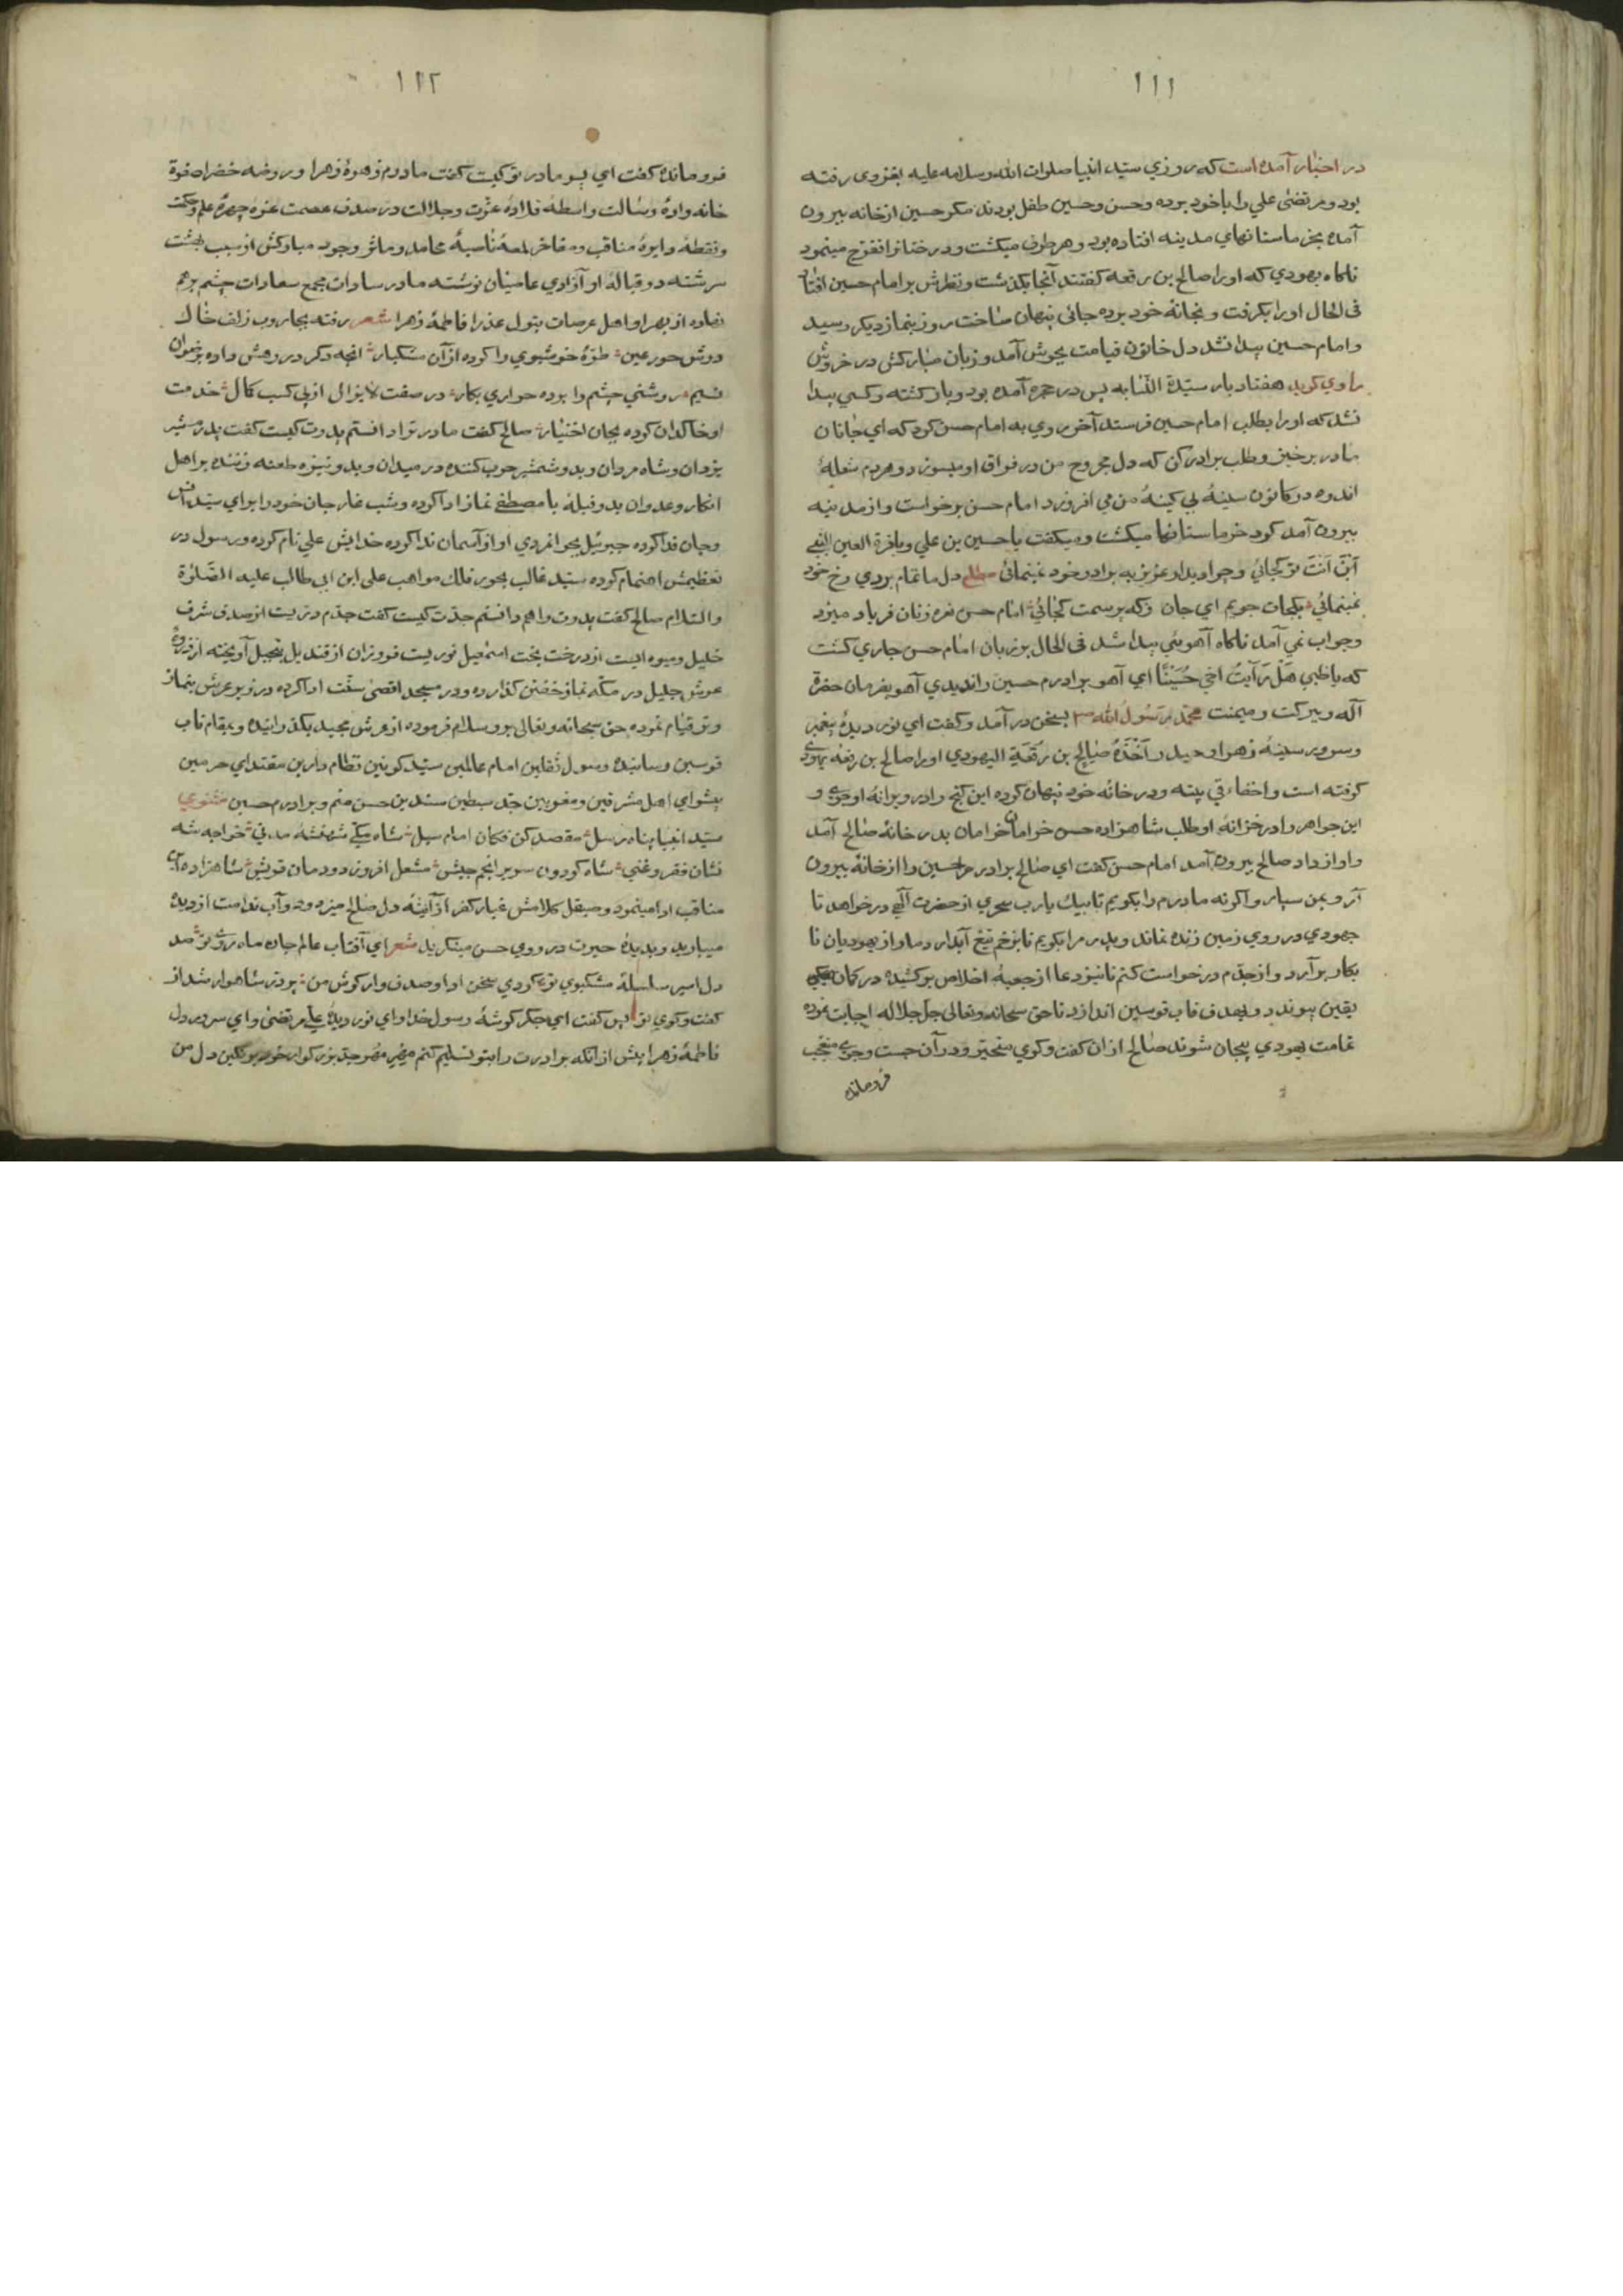 ١١١
در اخبار آمده است که روزی سید انبیا صلوات الله وسلامه علیه بغزوی رفته
بود ومرتضی علی را با خود برده وحسن وحسین طفل بودند مکر حسین از خانه بیرون
آمده بخرماستانهای مدینه افتاده بود وهر طرف میکشت ودرختانرا تفرّج مینمود
ناکاه یهودی که اورا صالح بن رقعه کفتند آنجا بکذشت ونظرش بر امام حسین افتاد
فی الحال اورا بکرفت وبخانهٔ خود برده جائی پنهان ساخت روز بنماز دیکر رسید
وامام حسین پیدا نشد دل خاتون قیامت بجوش آمد وزبان مبارکش در خروش
راوی کوید هفتاد بار سیّدة النّسا به پس در حجره آمده بود وباز کشته وکسی پیدا
نشد که اورا بطلب امام حسین فرستد آخر روی به امام حسن کرد که ای جانان
مادر برخیز وطلب برادر کن که دل مجروح من در فراق او میسوزد وهردم شعلهٔ
اندوه در کانون سینهٔ بی کینهٔ من می افروزد امام حسن برخواست واز مدینه
بیرون آمد کرد خرماستانها میکشت ومیکفت یا حسین بن علی ویا قرة العین النبی
اَیْنَ اَنْتَ تو کجائی وچرا دیدار عزیز به برادر خود نمینمائی مطلع دل ما تمام بردی رخ خود
نمینمائی بکجات جویم ای جان زکه پرسمت کجائی امام حسن نعره زنان فریاد میزد
وجواب نمی آمد ناکاه آهوئی پیدا شد فی الحال بر زبان امام حسن جاری کشت
که یا ظبی هَلْ رَاَیْتَ اخی حُسَیْنًا ای آهو برادرم حسین را ندیدی آهو بفرمان حضرة
آله وببرکت ومیمنت محمّد رسُولُ الله بسخن در آمد وکفت ای نور دیدهٔ پیغمبر
وسرور سینهٔ زهرا وحیدر اَخَذَهُ صَالِح بن رَقعَةِ الیهودی اورا صالح بن رقعه یهودی
کرفته است واخفاء فی بیته ودر خانه خود پنهان کرده این کنج را در ویرانهٔ او جوی و
این جواهر را در خزانهٔ او طلب شاهزاده حسن خرامان خرامان بدر خانهٔ صالح آمد
واواز داد صالح بیرون آمد امام حسن کفت ای صالح برادرم حسین را از خانه بیرون
آر وبمن سپار واکرنه مادرم را بکویم تا بیك یارب سحری از حضرت آلهی درخواهد تا
جهودی در روی زمین زنده نماند وپدرم را بکویم تا بزخم تیغ آبدار دمار از یهودیان نا
بکار برآرد واز جدّم درخواست کنم تا تیر دعا از جعبهٔ اخلاص برکشیده در کمان
یقین پیوندد وبهدف قاب قوسین اندازد تا حق سبحانه وتعالی جل جلاله اجابت نموده
تمامت یهودی بیجان شوند صالح از ان کفت وکوی متحیّر ودر آن جست وجوی متعجّب
فروماند
١١٢
فروماندہ کفت ای پسر مادر تو کیست کفت مادرم زهرهٔ زهرا وروضه خضرا صفوة
خانه وادهٔ رسالت واسطهٔ قلادهٔ عزّت وجلالت در صدف عصمت غرّه چهرهٔ علم وحکمت
ونقطهٔ دایرهٔ مناقب ومفاخر لمعهٔ ناصیهٔ محامد ومآثر وجود مبارکش از سیب بهشت
سرشته در قبالهٔ او آزادی عاصیان نوشته مادر سادات مجمع سعادات چشم برهم
نهاده از بهر او اهل عرصات بتول عذرا فاطمهٔ زهرا شعر رفته بجاروب زلف خاك
درش حور عین طرّهٔ خوشبوی را کرده از آن مشکبار آنچه دکر در رهش داده برضوان
نسیم روشنی چشم را برده حواری بکار در صفت لایزال از پی کسب کمال خدمت
او خاکدان کرده بجان اختیار صالح کفت مادر ترا دانستم پدرت کیست کفت پدرم شیر
یزدان وشاه مردان وبدو شمشیر حرب کننده در میدان وبدو نیزه طعنه زننده بر اهل
انکار وعدوان بدو قبله با مصطفی نماز ادا کرده وشب غار جان خود را برای سیّد انس
وجان فدا کرده جبرئیل بجوانمردی او از آسمان ندا کرده خدایش علی نام کرده ورسول در
تعظیمش اهتمام کرده سیّد غالب محور فلك مواهب علی ابن ابی طالب علیه الصّلوة
والسّلام صالح کفت پدرت را هم دانستم جدّت کیست کفت جدّم درّیست از صدف شرف
خلیل ومیوه ایست از درخت بخت اسمٰعیل نوریست فروزان از قندیل تبجیل آویخته از ذروهٔ
عرش جلیل در مکّه نماز خفتن کذارده ودر مسجد اقصی سنّت ادا کرده در زیر عرش بنماز
وتر قیام نموده حق سبحانه وتعالی برو سلام فرموده از عرش مجید بکذرانیده وبمقام قاب
قوسین رسانیده رسول ثقلین امام عالمین سیّد کونین نظام دارین مقتدای حرمین
پیشوای اهل مشرقین ومغربین جدّ سبطین سیّدین حسن منم وبرادرم حسین مثنوی
سیّد انبیا پناه رسل مقصد کن فکان امام سبل شاه مکّی شهنشه مدنی خواجه شه
نشان فقر وغنی شاه کردون سریر انجم جیش مشعل افروز دودمان قریش شاهزاده آن
مناقب ادا مینمود وصیقل کلامش غبار کفر از آینهٔ دل صالح میزدود وآب ندامت از دیدهٔ
میبارید وبدیدهٔ حیرت در روی حسن مینکرید شعر ای آفتاب عالم جان ماه روی تو صد
دل اسیر سلسلهٔ مشکبوی تو کردی سخن ادا وصدف وار کوش من پر درّ شاهوار شد از
کفت وکوی تو پس کفت ای جکر کوشهٔ رسول خدا وای نور دیدهٔ علی مرتضی وای سرور دل
فاطمهٔ زهرا پیش از آنکه برادرت را بتو تسلیم کنم مهر جدّ بزرکوار خود بر نکین دل من